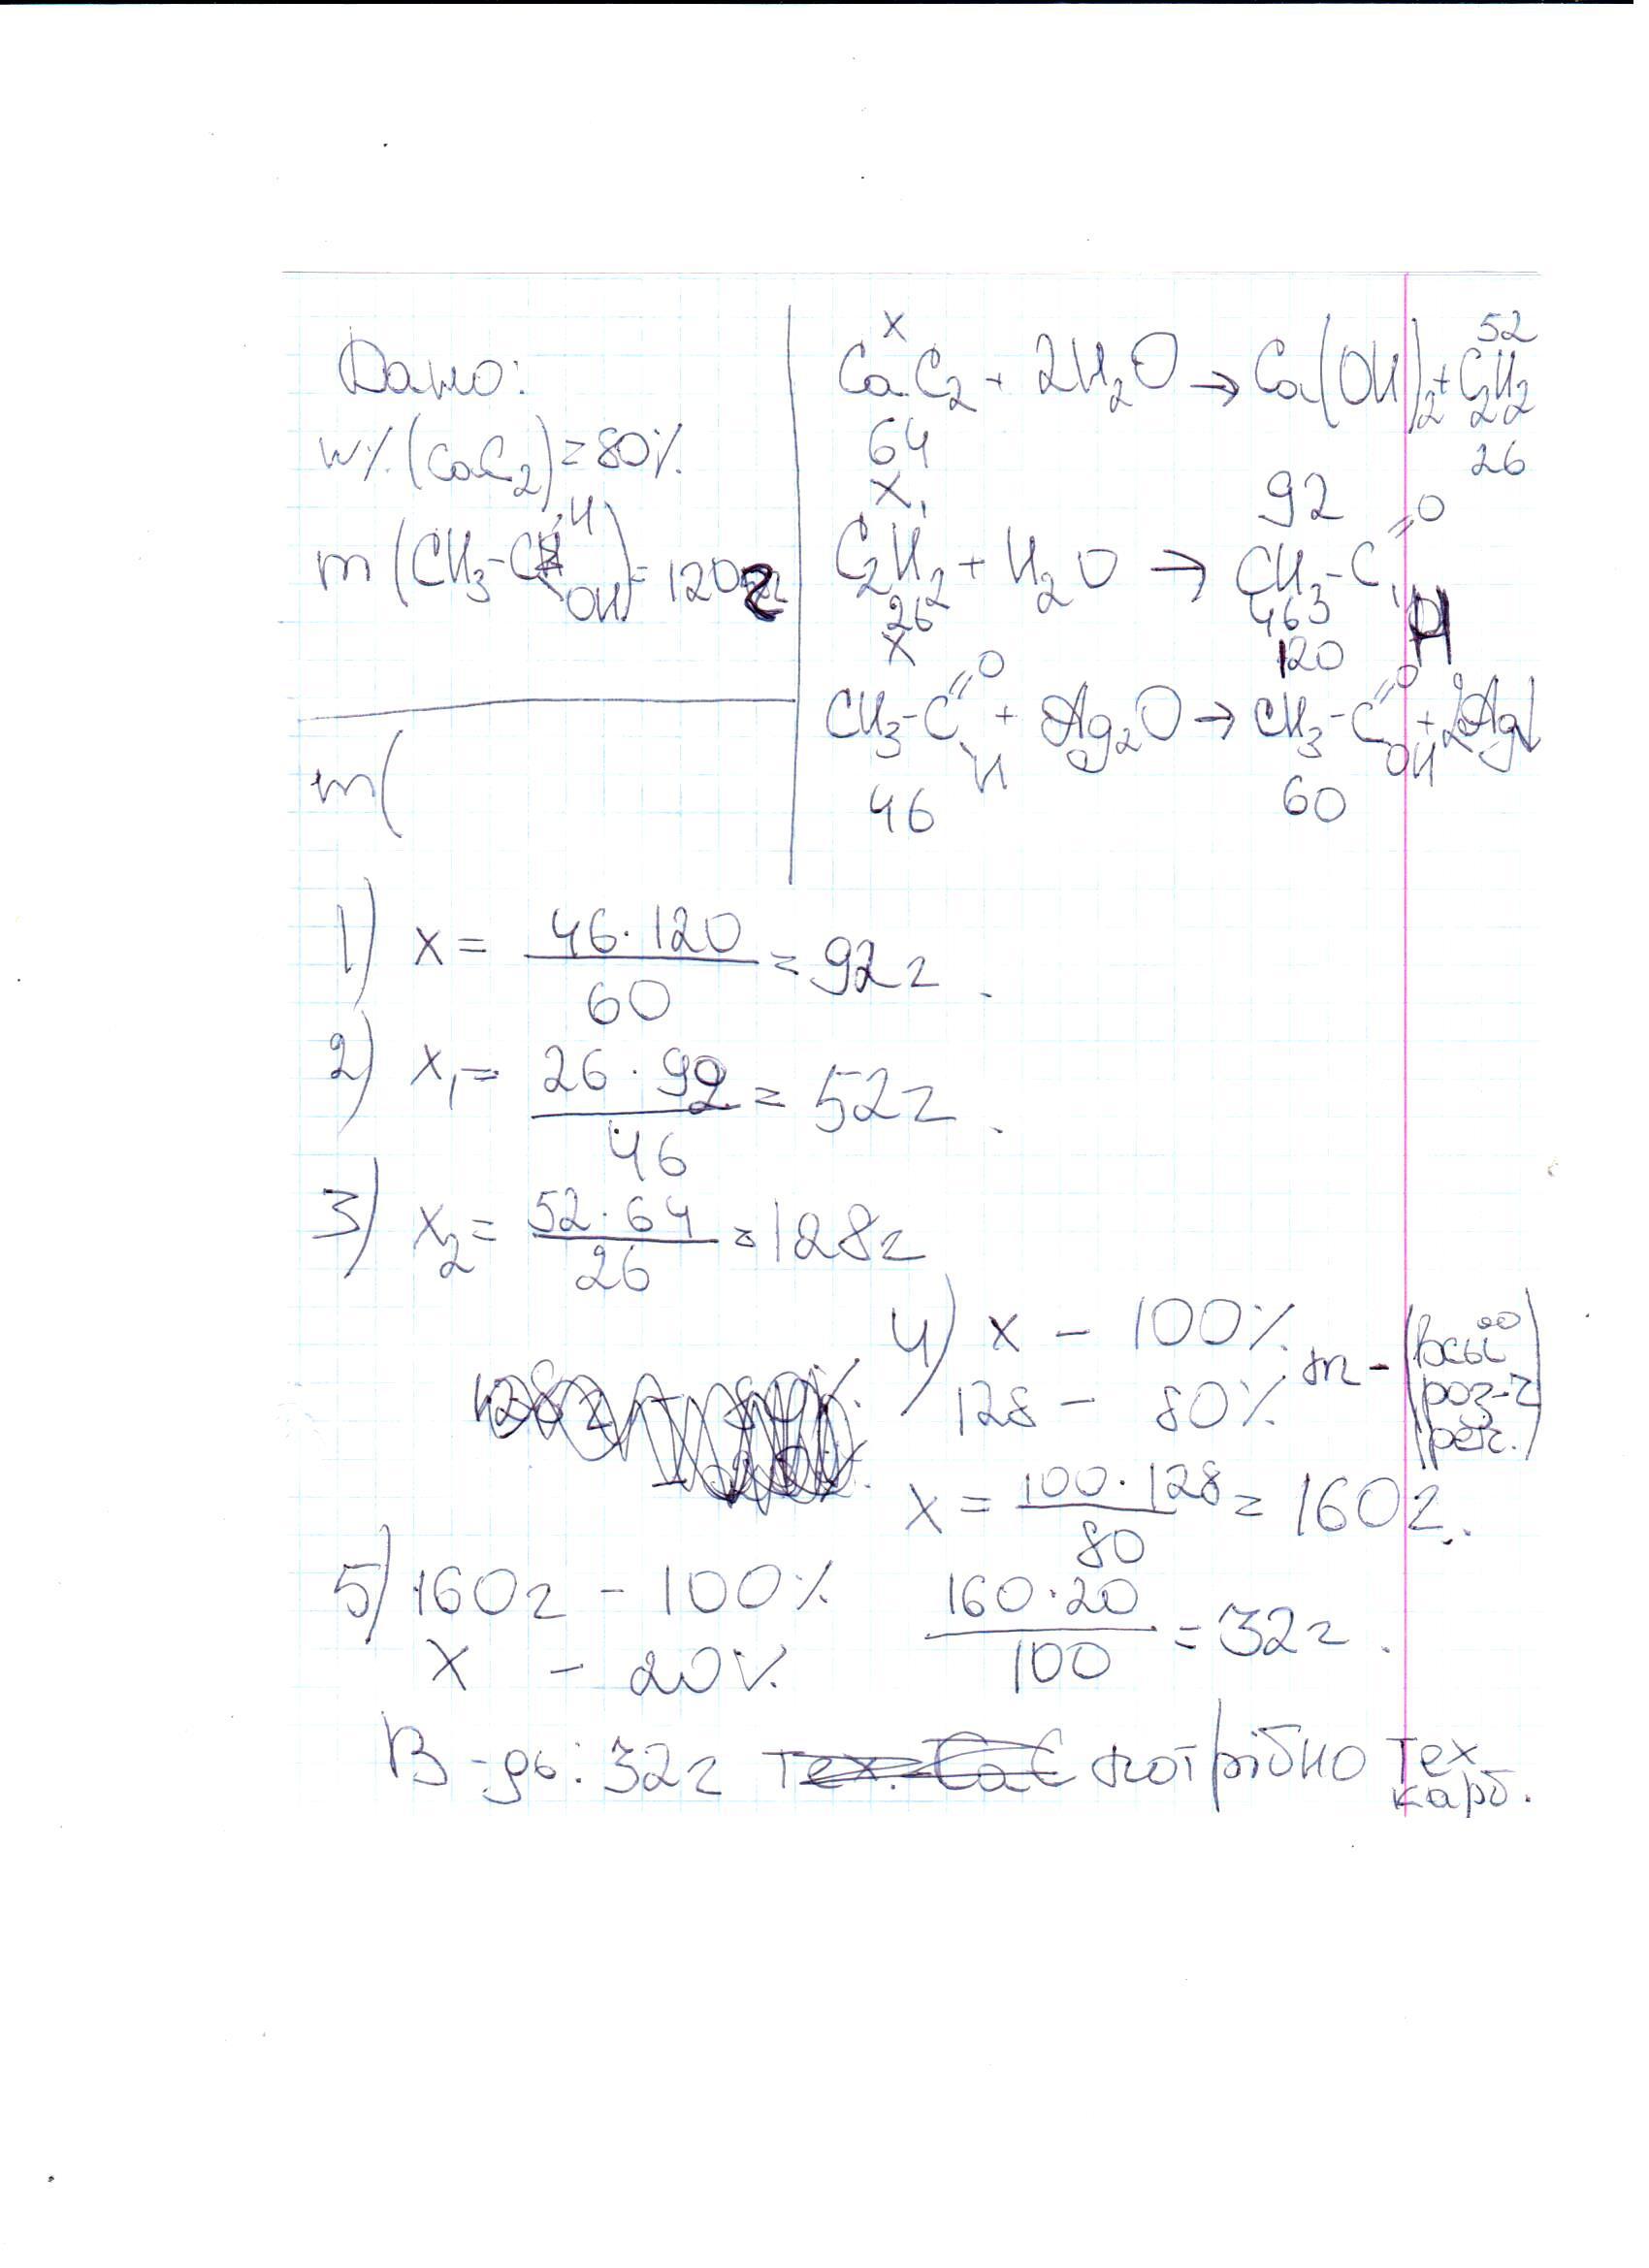 Дано:
w% (CaC2) = 80%
m (CH3-C OH) = 120 г
m(
x 52
CaC2 + 2H2O → Ca(OH)2 + C2H2
64 26
x1 92
C2H2 + H2O → CH3-C=O H
26 46
x 120
CH3-C=O H + Ag2O → CH3-C=O OH + 2Ag↓
46 60
1) x = 46·120 / 60 = 92 г.
2) x1 = 26·92 / 46 = 52 г.
3) x2 = 52·64 / 26 = 128 г
4) x – 100%
128 – 80%
m – (
роз-
x = 100·128 / 80 = 160 г.
5) 160 г – 100% 160·20 / 100 = 32 г.
x – 20%
В-дь: 32 г потрібно тех
карб.